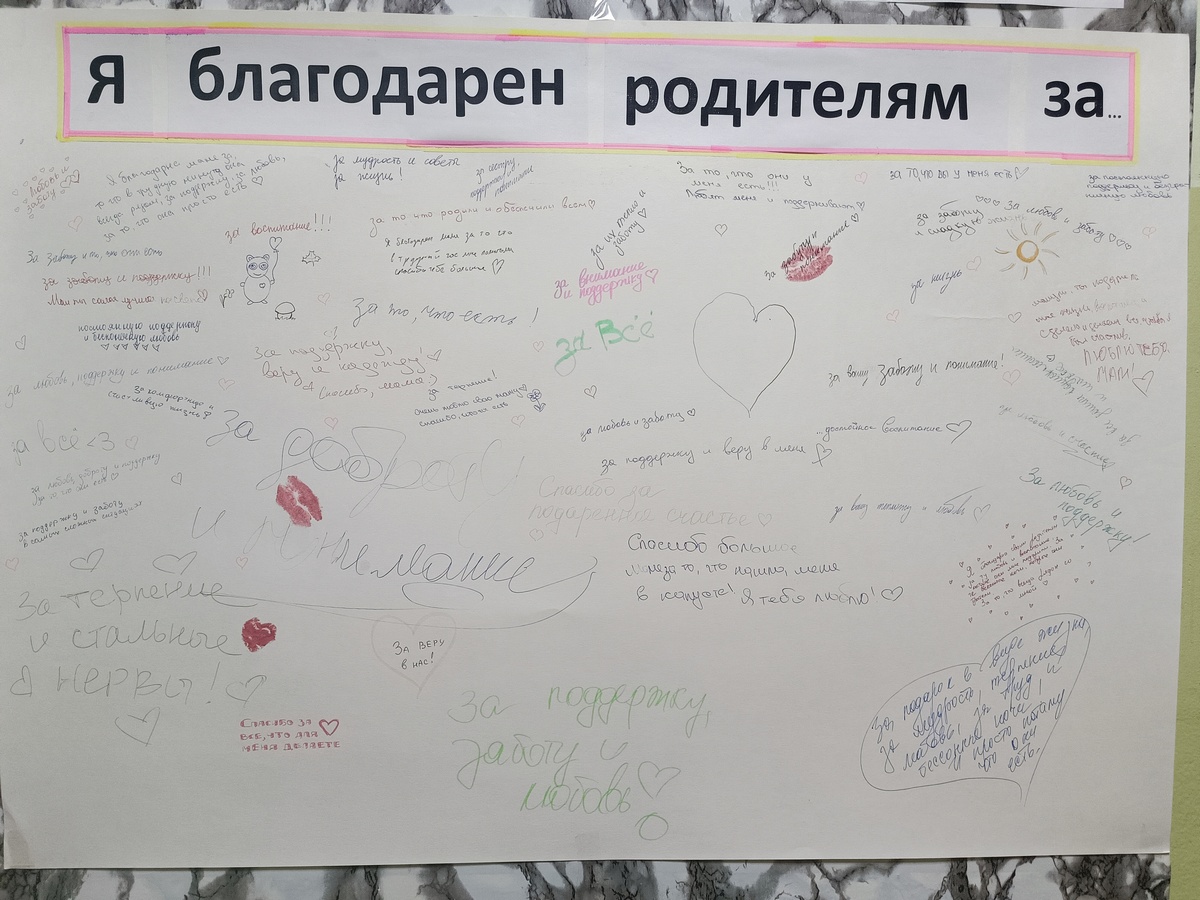 Я благодарен родителям за...
Любовь и
заботу
Я благодарю маму за,
то что в трудную минуту она
всегда рядом, за поддержку, за любовь,
за то что она просто есть
За мудрость и советы
За жизнь!
За то, что они у
меня есть!!!
Любят меня и поддерживают
за то, что вы у меня есть!
за постоянную
поддержку и
любовь
за воспитание!!!
за то что родили и обеспечили всем
Я благодарен маме за то что
в трудный час мне
спасибо тебе большое
за их тепло и
заботу
за заботу и
понимание
за заботу
и
За любовь и
заботу
За заботу и то, что они есть
за заботу и поддержку!!!
Мои самые лучшие
постоянную поддержку
и бесконечную любовь
за внимание
и поддержку
за жизнь
За то, что есть!
за Всё
сделала и делаешь все чтобы я
был счастлив.
ЛЮБЛЮ ТЕБЯ,
МАМ!
За поддержку,
веру и надежду!
(Спасибо, мама)
за любовь, поддержку и понимание
за вашу заботу и понимание!
За комфортную и
счастливую жизнь
за терпение!
очень люблю свою маму
спасибо, что ты есть
за всё <3
за
доброту
и понимание
за любовь и заботу
...достойное воспитание
за поддержку и веру в меня
за любовь, доброту и поддержку
За то что вы есть
за поддержку и заботу
в самых сложных ситуациях
Спасибо за
подаренное счастье
за вашу и любовь
За любовь и
поддержку!
Спасибо большое
мама за то, что нашла меня
в капусте! Я тебя люблю!
За терпение
и стальные
нервы!
За веру
в нас!
Спасибо за
все, что для
меня делаете
За поддержку,
заботу и
любовь
за подарок в виде жизни,
за мудрость, терпение,
любовь, за труд и
бессонные ночи,
и просто потому
что они
есть.